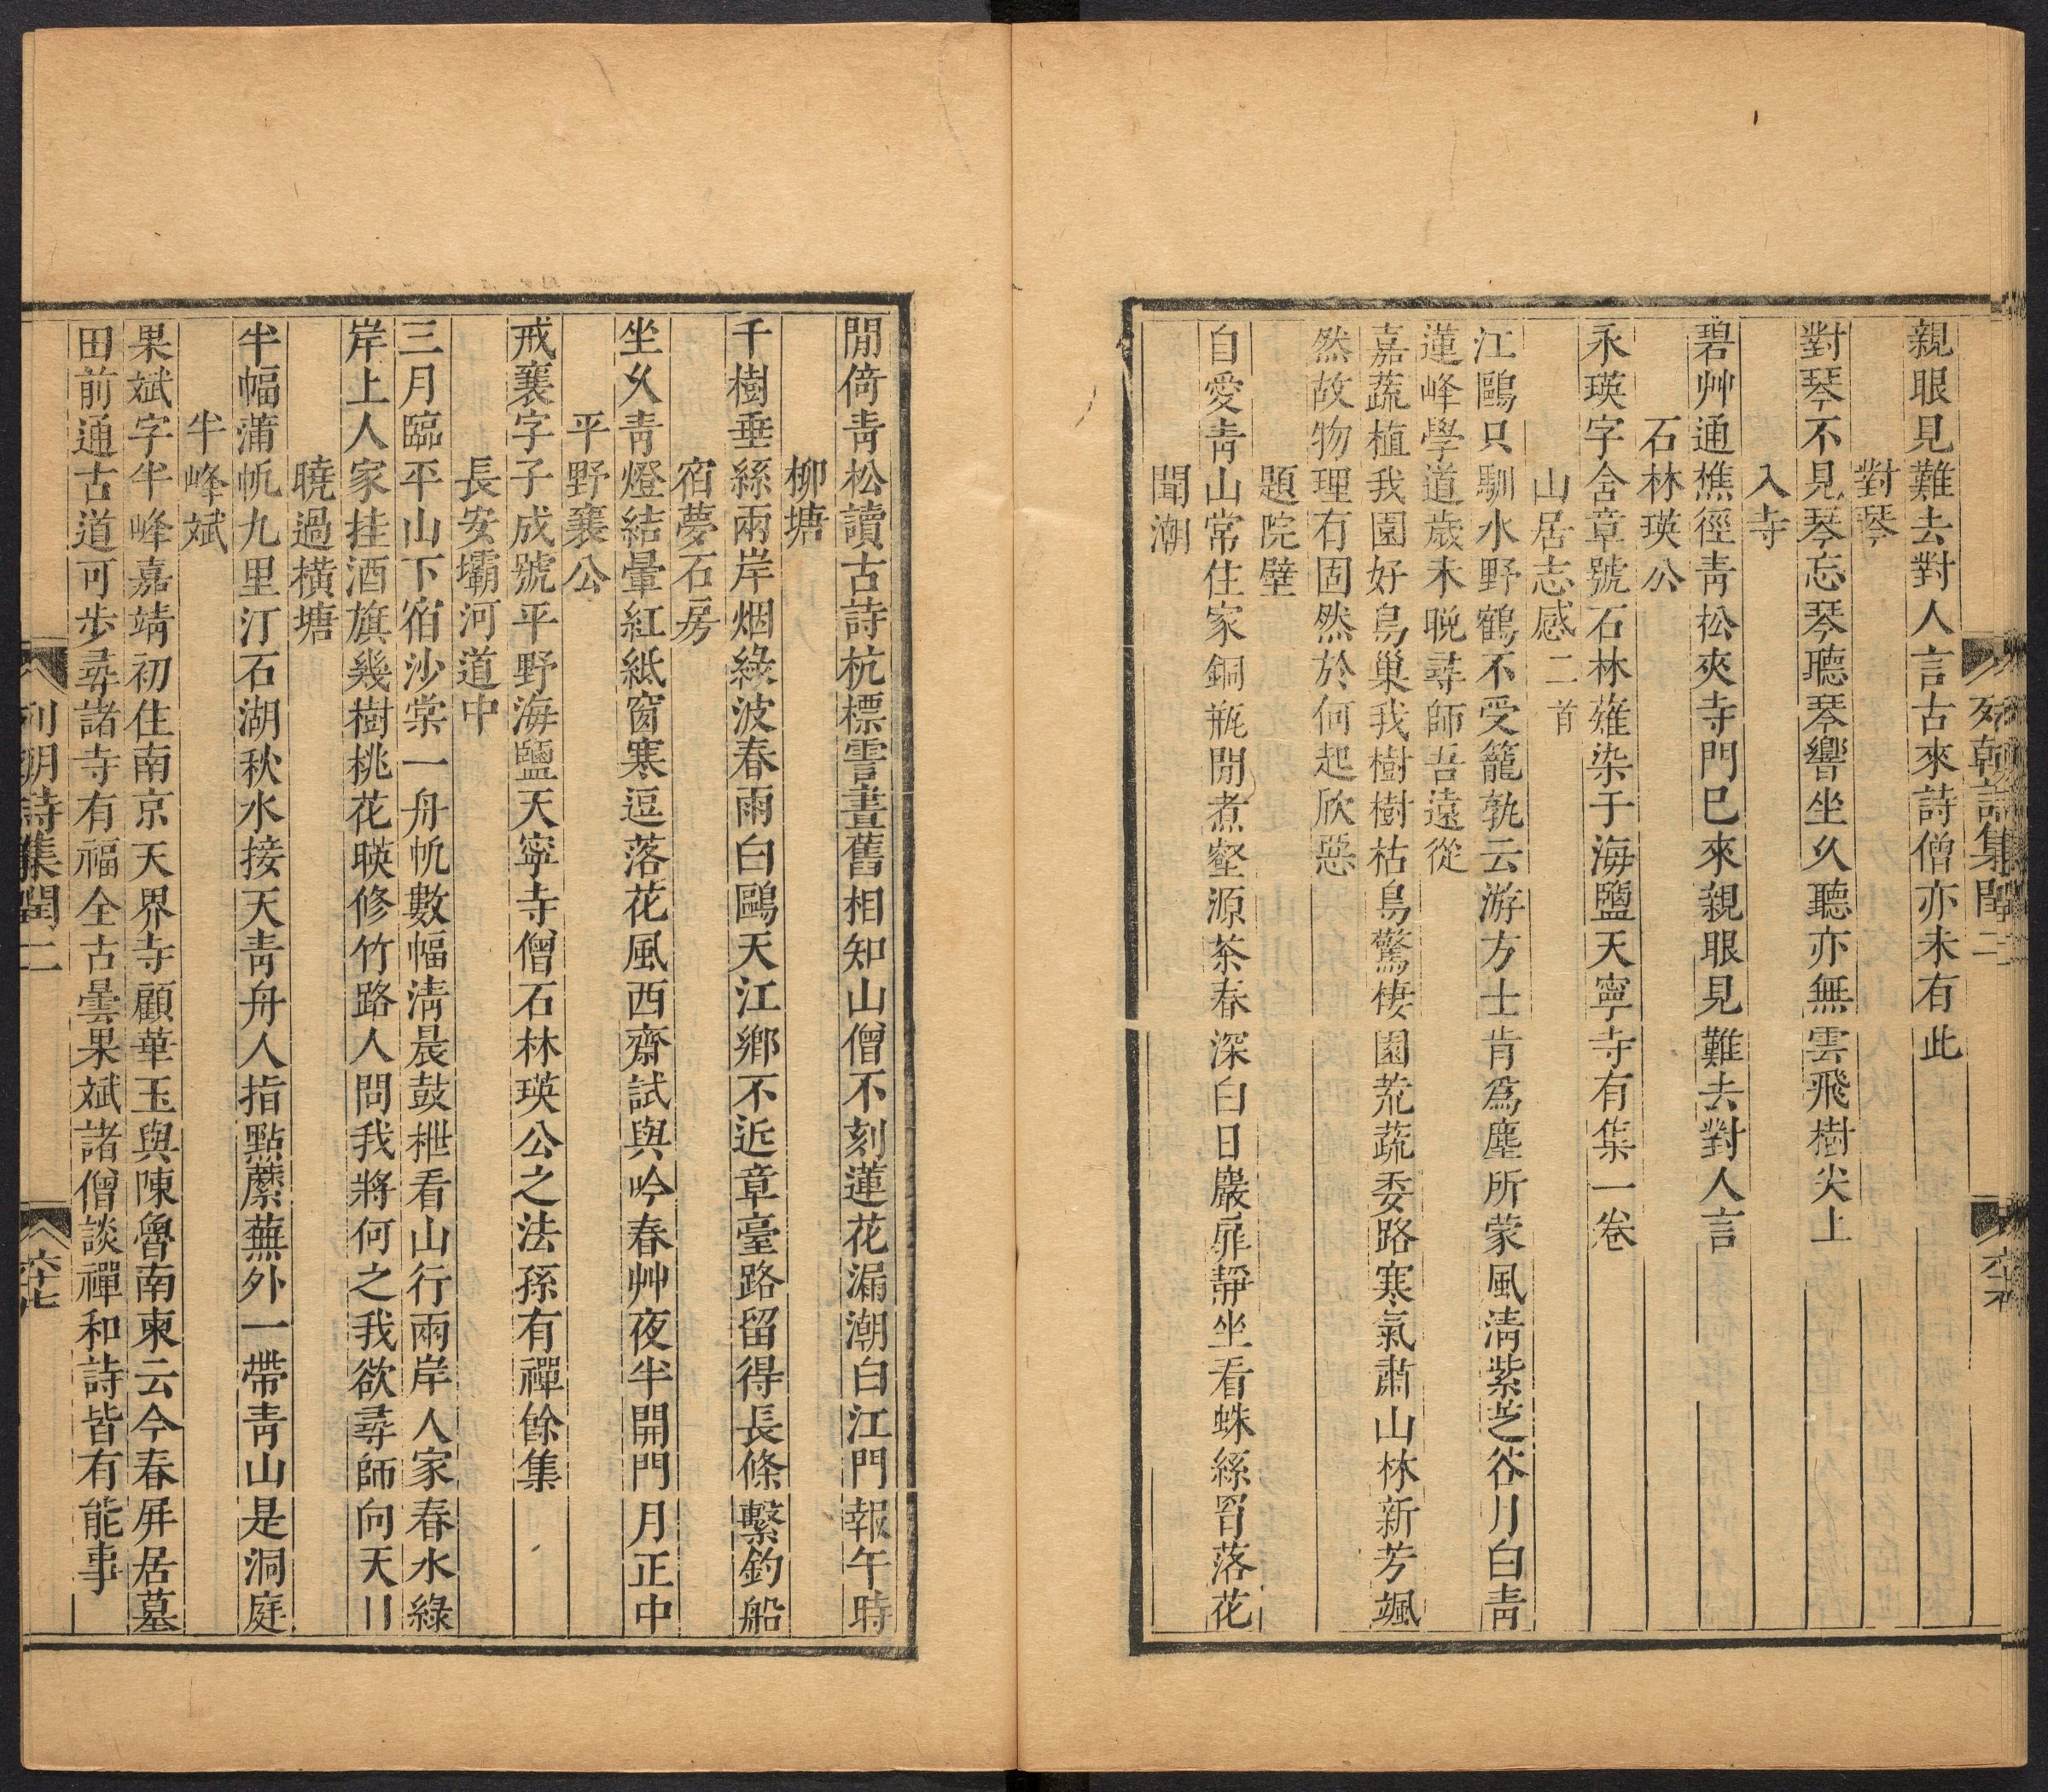 列朝詩集閏二
親眼見難去對人言古來詩僧亦未有此
對琴
對琴不見琴忘琴聽琴響坐久聽亦無雲飛樹尖上
入寺
碧艸通樵徑青松夾寺門已來親眼見難去對人言
石林瑛公
永瑛字含章號石林薙染于海鹽天寧寺有集一卷
山居志感二首
江鷗只馴水野鶴不受籠孰云游方士肯爲塵所蒙風清紫芝谷月白青
蓮峰學道歲未晚尋師吾遠從
嘉蔬植我園好鳥巢我樹樹枯鳥驚棲園荒蔬委路寒氣肅山林新芳颯
然故物理有固然於何起欣惡
題院壁
自愛青山常住家銅瓶閒煮壑源茶春深白日巖扉靜坐看蛛絲罥落花
聞潮
閒倚青松讀古詩杭標雪晝舊相知山僧不刻蓮花漏潮白江門報午時
柳塘
千樹垂絲兩岸烟綠波春雨白鷗天江鄉不近章臺路留得長條繫釣船
宿夢石房
坐久青燈結暈紅紙窗寒逗落花風西齋試與吟春艸夜半開門月正中
平野襄公
戒襄字子成號平野海鹽天寧寺僧石林瑛公之法孫有禪餘集
長安壩河道中
三月臨平山下宿沙棠一舟帆數幅清晨鼓枻看山行兩岸人家春水綠
岸上人家挂酒旗幾樹桃花暎修竹路人問我將何之我欲尋師向天目
曉過橫塘
半幅蒲帆九里汀石湖秋水接天青舟人指點蘼蕪外一帶青山是洞庭
半峰斌
果斌字半峰嘉靖初住南京天界寺顧華玉與陳魯南柬云今春屏居墓
田前通古道可步尋諸寺有福全古曇果斌諸僧談禪和詩皆有能事
列朝詩集閏二
六十七